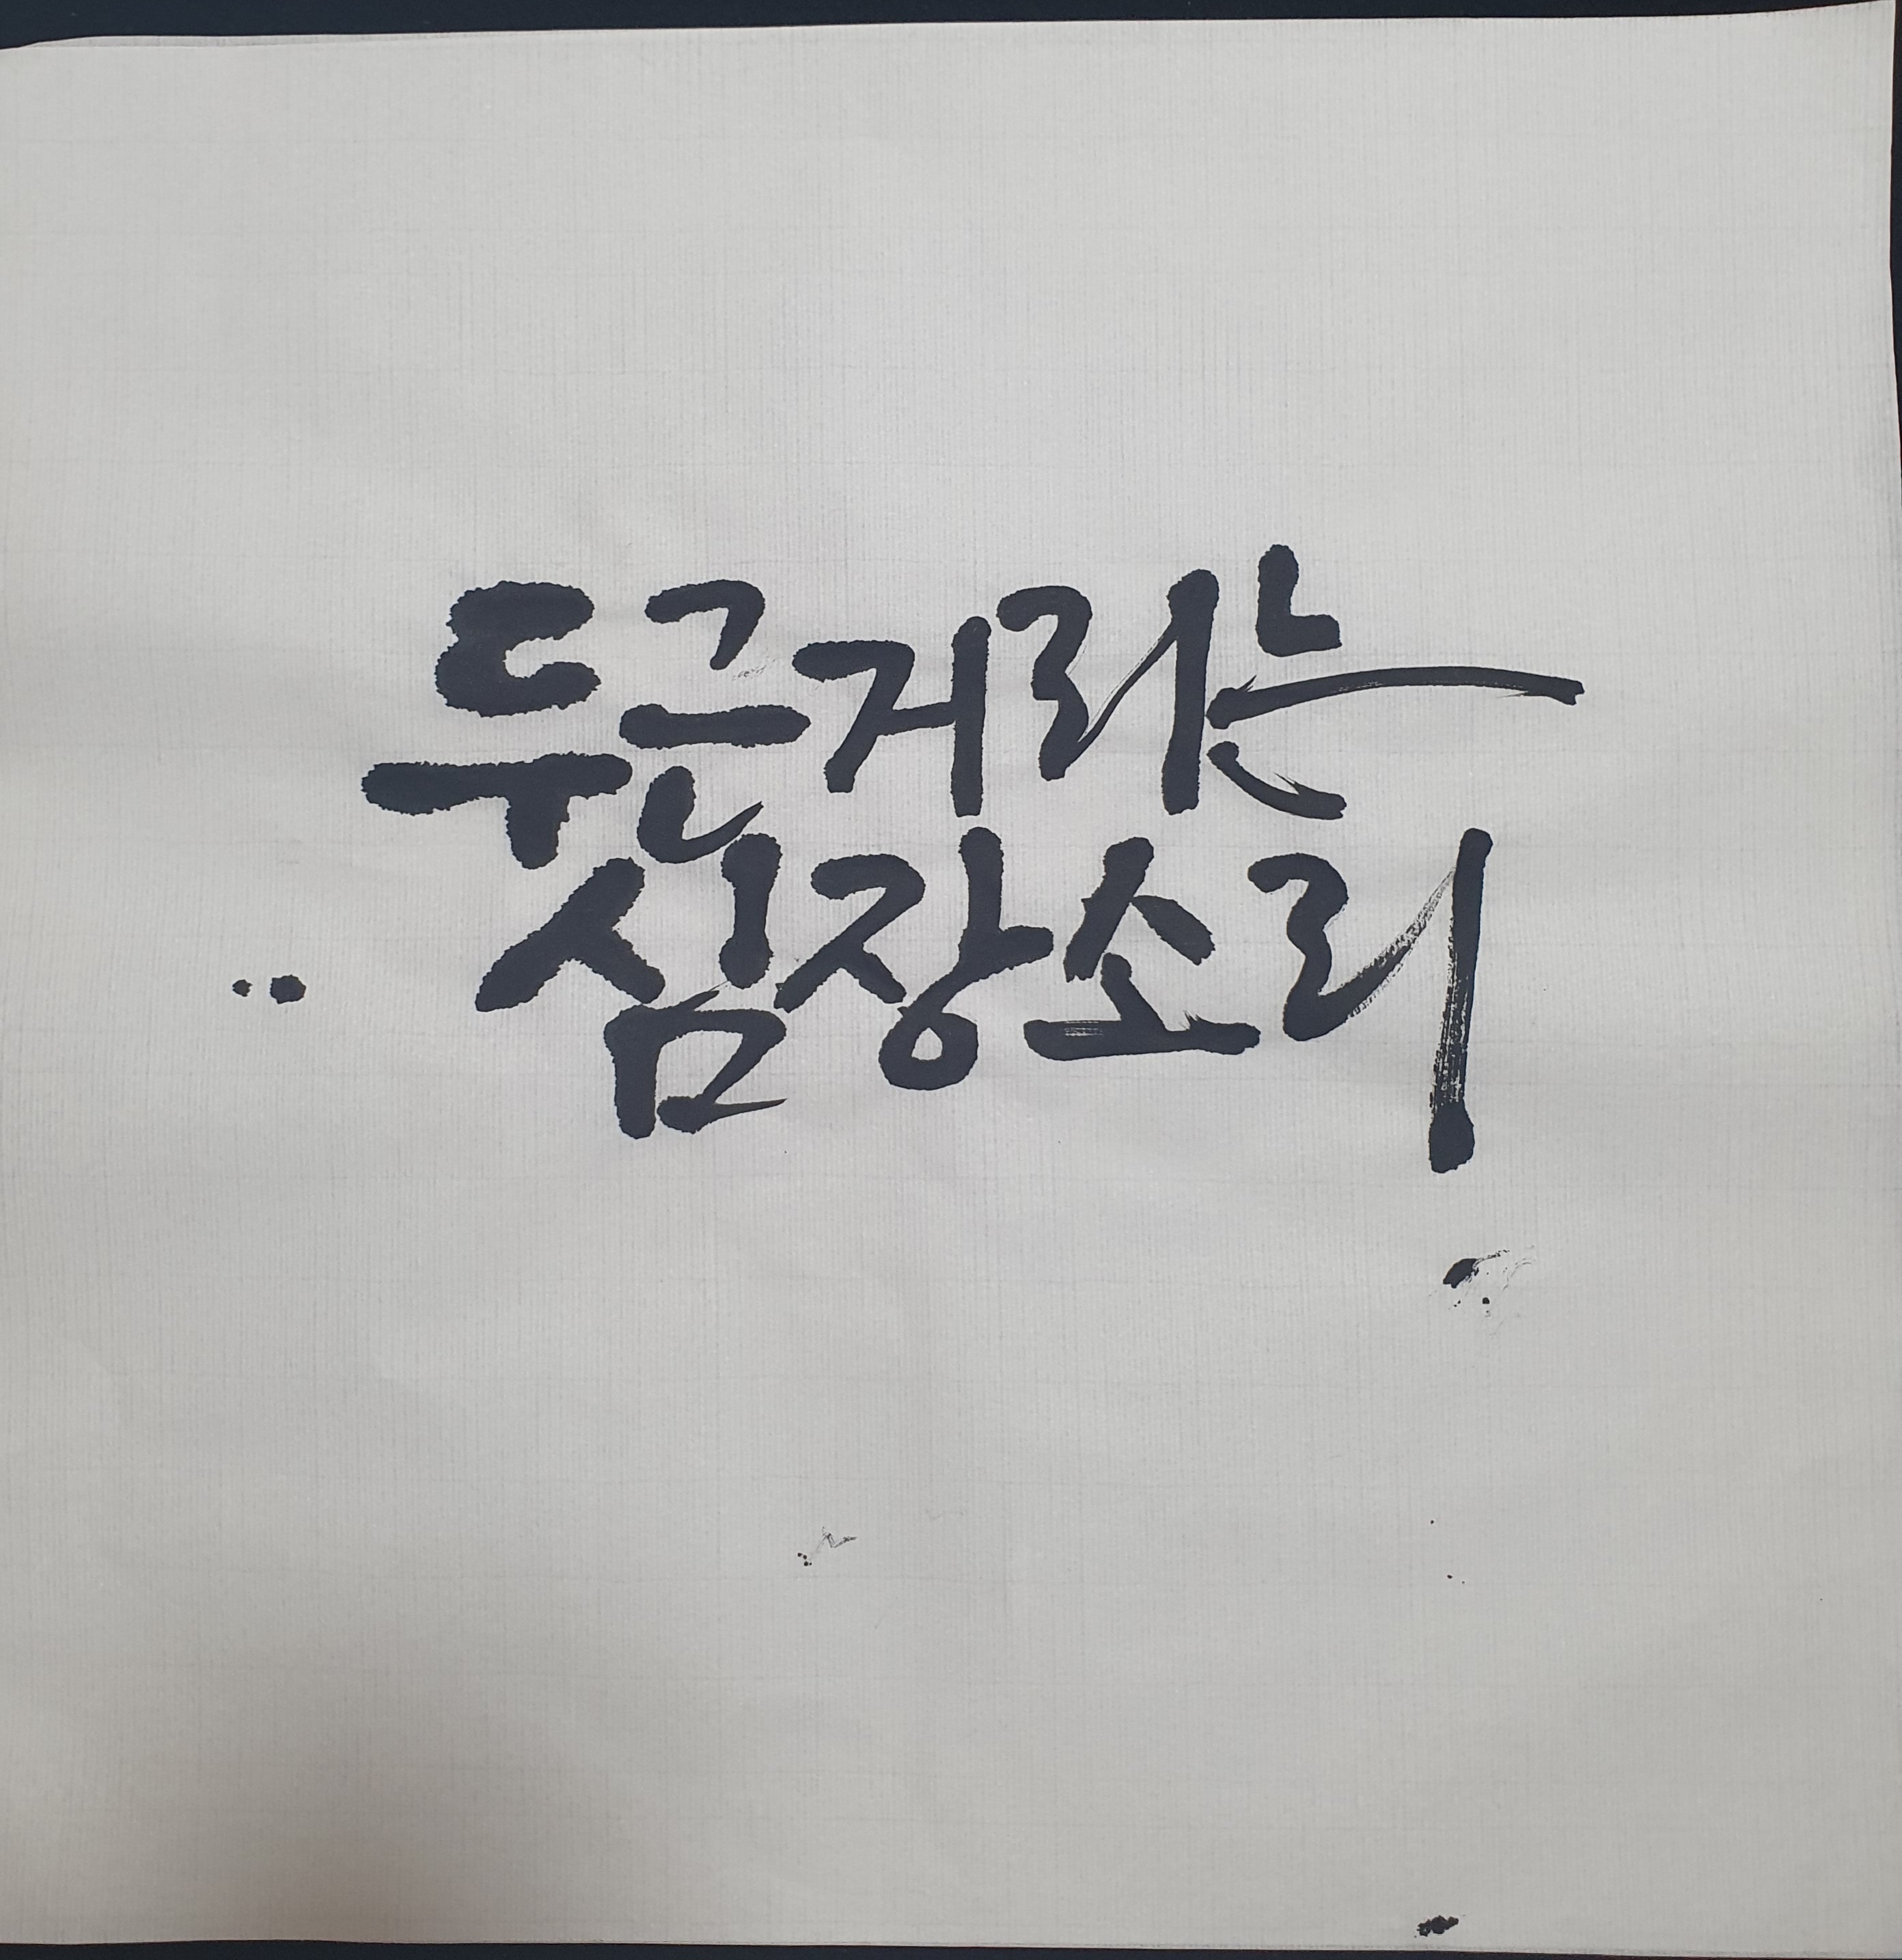 두근거리는
심장소리